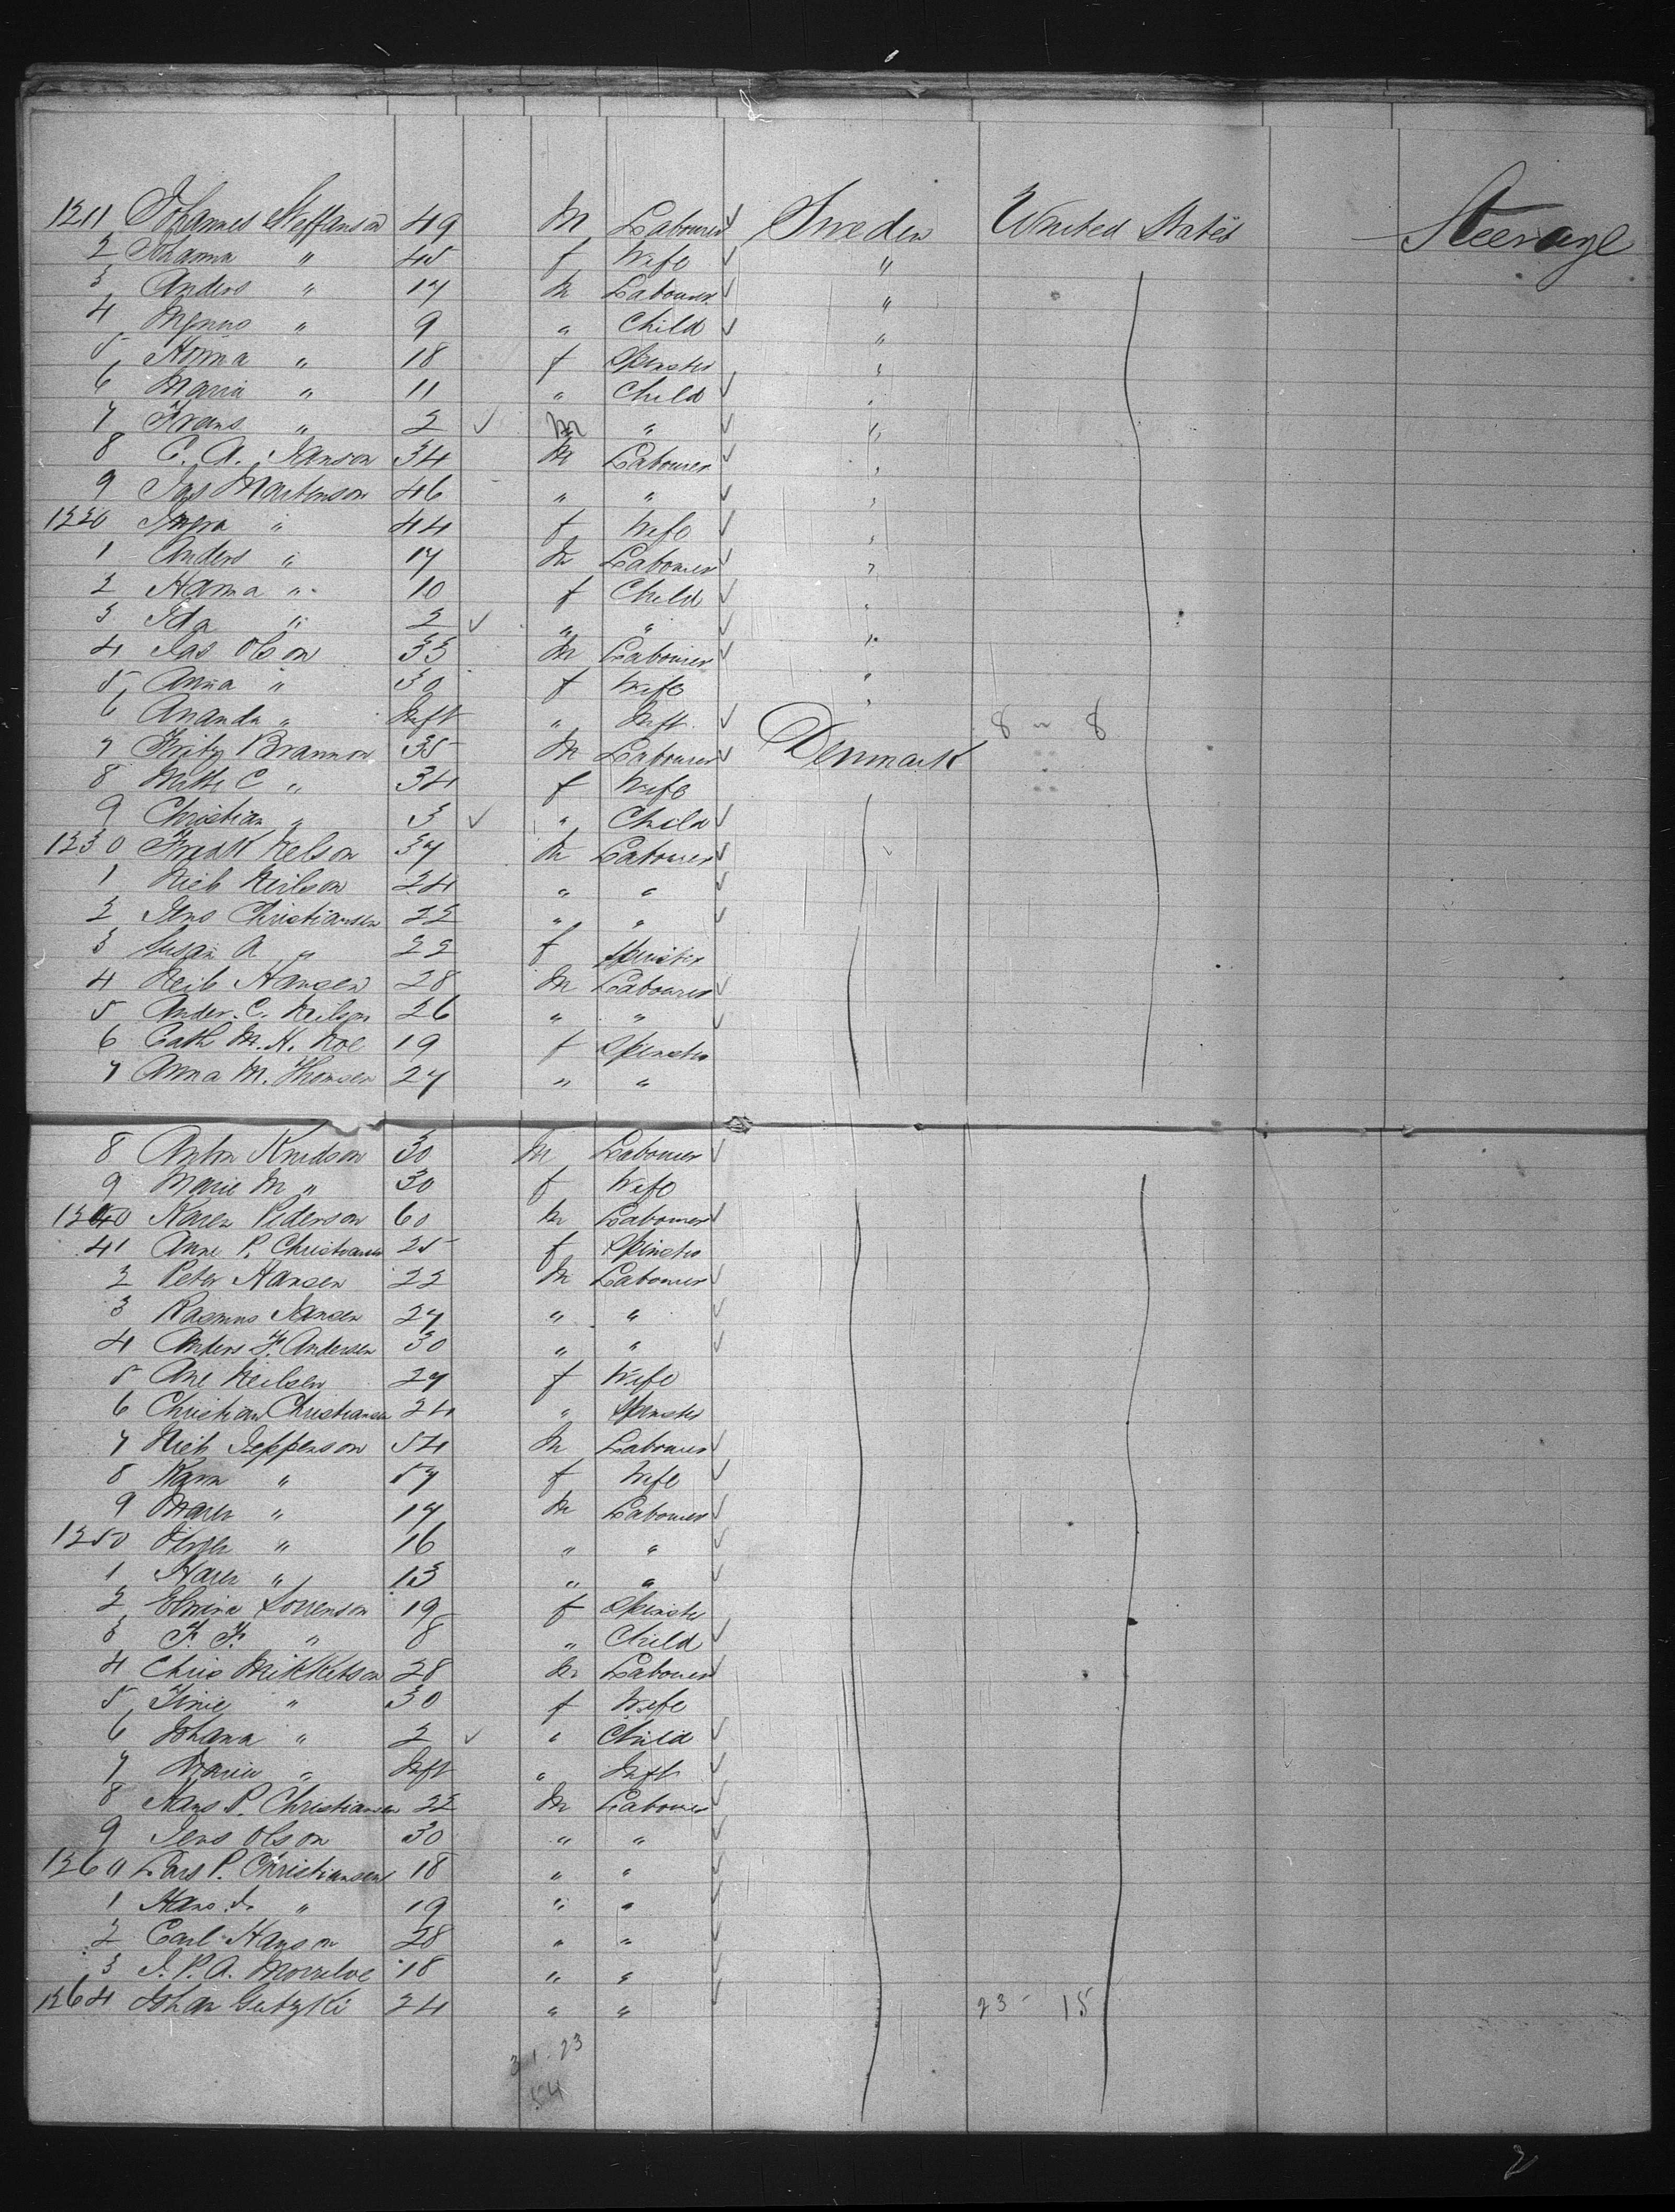 1211 Johannes Steffanson 49 M Labourer Sweden United States Steerage
2 Johanna " 45 f Wife "
3 Anders " 17 M Labourer "
4 " 9 " Child "
5 " 18 f Spinster "
6 Maria " 11 " Child "
7 Frans " 2 M " "
8 C. A. Janson 34 M Labourer "
9 Jas Martenson 46 " " "
1220 " 44 f Wife "
1 Anders " 17 M Labourer "
2 Hanna " 10 f Child "
3 Ida " 2 " " "
4 Jas Olson 33 M Labourer "
5 Anna " 30 f Wife "
6 Ananda " Inft " Inft "
7 Fritz Brannon 35 M Labourer Denmark 8 ~ 8
8 C " 34 f Wife
9 Christian " 3 " Child
1230 Fredk Nelson 37 M Labourer
1 Niels Neilson 24 " "
2 Jens Christiansen 22 " "
3 Susan A " 22 f Spinster
4 Neils Hansen 28 M Labourer
5 Ander. C. Neilson 26 " "
6 Cath M. H. 19 f Spinster
7 Anna M. Thomsen 27 " "
8 Anton Knudson 30 M Labourer
9 Marie M " 30 f Wife
1240 Karen Pederson 60 M Labourer
41 Anne P. Christiansen 25 f Spinster
2 Peter Hansen 22 M Labourer
3 Rasmus Jansen 27 " "
4 Anders F. Andersen 30 " "
5 Ane Neilsen 27 f Wife
6 Christian Christiansen 24 " Spinster
7 Niels Jeppenson 54 M Labourer
8 Karn " 57 f Wife
9 Maren " 17 M Labourer
1250 " 16 " "
1 Haren " 13 " "
2 Elmina Sorrenson 19 f Spinster
3 F. F. " 8 " Child
4 Chris Mikkelson 28 M Labourer
5 Tinie " 30 f Wife
6 Johana " 2 " Child
7 Marie " Inft " Inft
8 Hans P. Christiansen 22 M Labourer
9 Jens Olson 30 " "
1260 Lars P. Christiansen 18 " "
1 Hans J. " 19 " "
2 Carl Hanson 28 " "
3 J. P. A. 18 " "
1264 Johan 24 " " 23 - 15
31-23
54